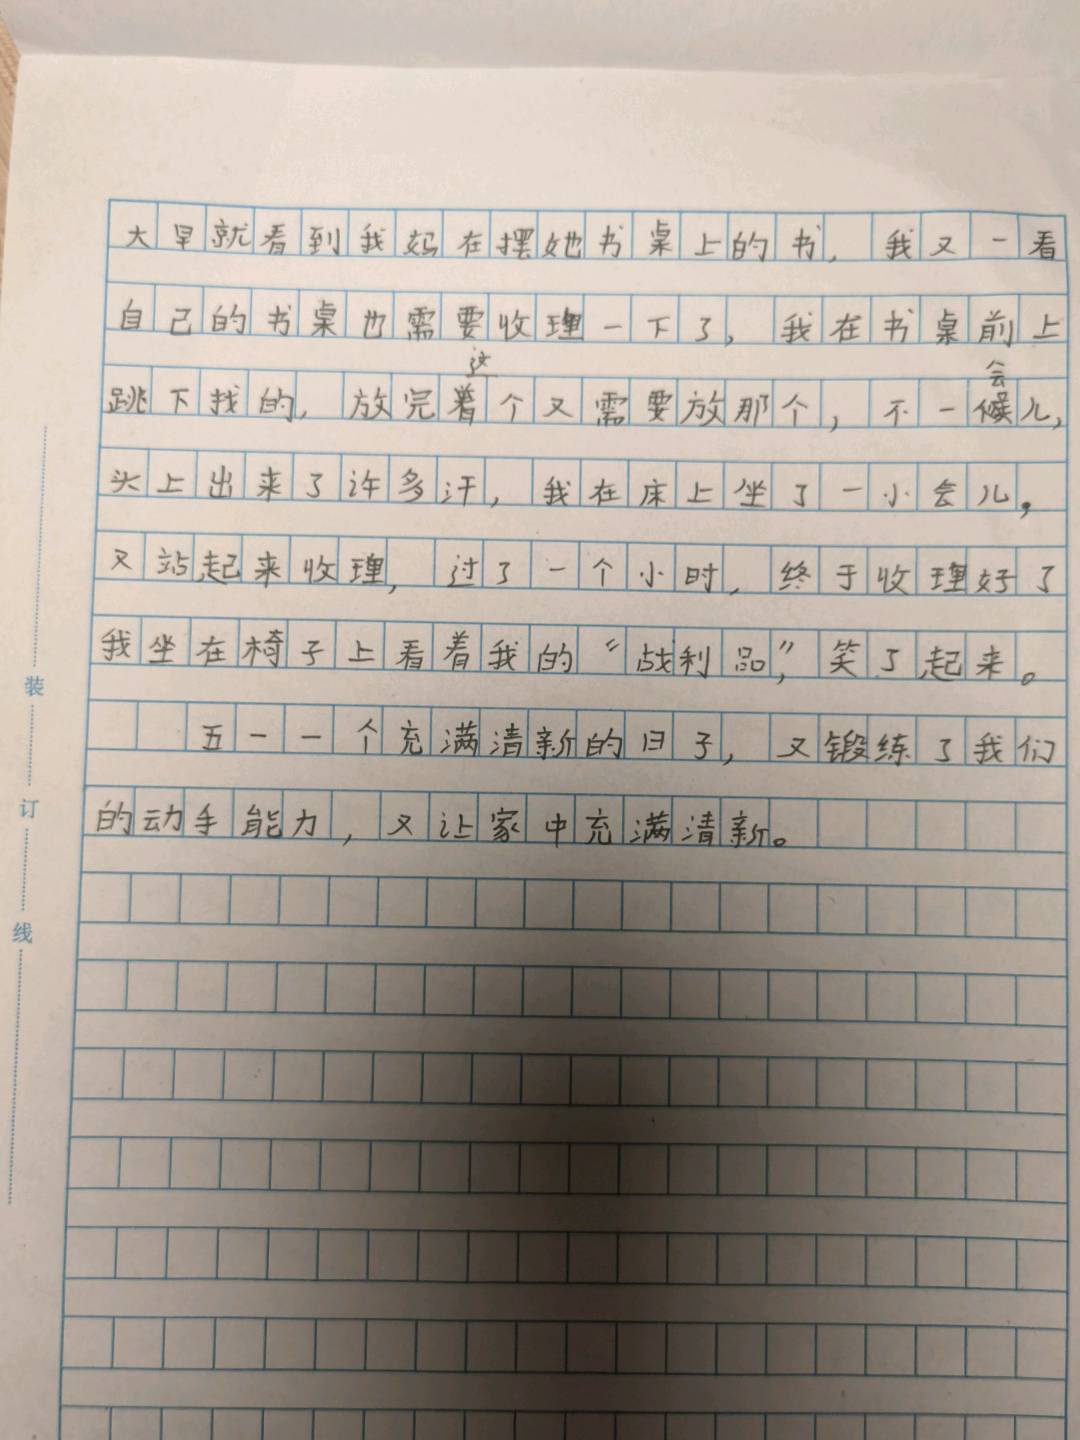 大早就看到我妈在摆她书桌上的书，我又一看
自己的书桌也需要收理一下了，我在书桌前上
这 会
跳下找的，放完着个又需要放那个，不一候儿，
头上出来了许多汗，我在床上坐了一小会儿，
又站起来收理，过了一个小时，终于收理好了
我坐在椅子上看着我的“战利品”，笑了起来。
五一一个充满清新的日子，又锻练了我们
的动手能力，又让家中充满清新。
装
订
线